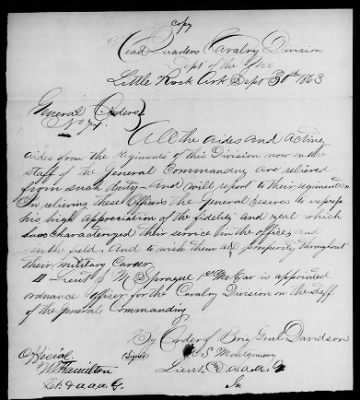 Copy
Head Quarters Cavalry Division
Dept of the
Little Rock Ark Sept 30th 1863
General Orders
No
All the aides and acting
aides from the Regiments of this Division now on the
staff of the General Commanding are relieved
from such duty and will report to their regiments
In relieving these Officers the General desires to express
his high appreciation of the fidelity and zeal which
has characterized their service in the office and
in the field and to wish them all prosperity throughout
their military Career
II Lieut J M Sprague 1st Mo Cav is appointed
ordnance officer for the Cavalry Division on the staff
of the General Commanding
By Order of Brig Genl Davidson
Signed S Montgomery
Official Lieut
W Hamilton
Lt & a a a G.